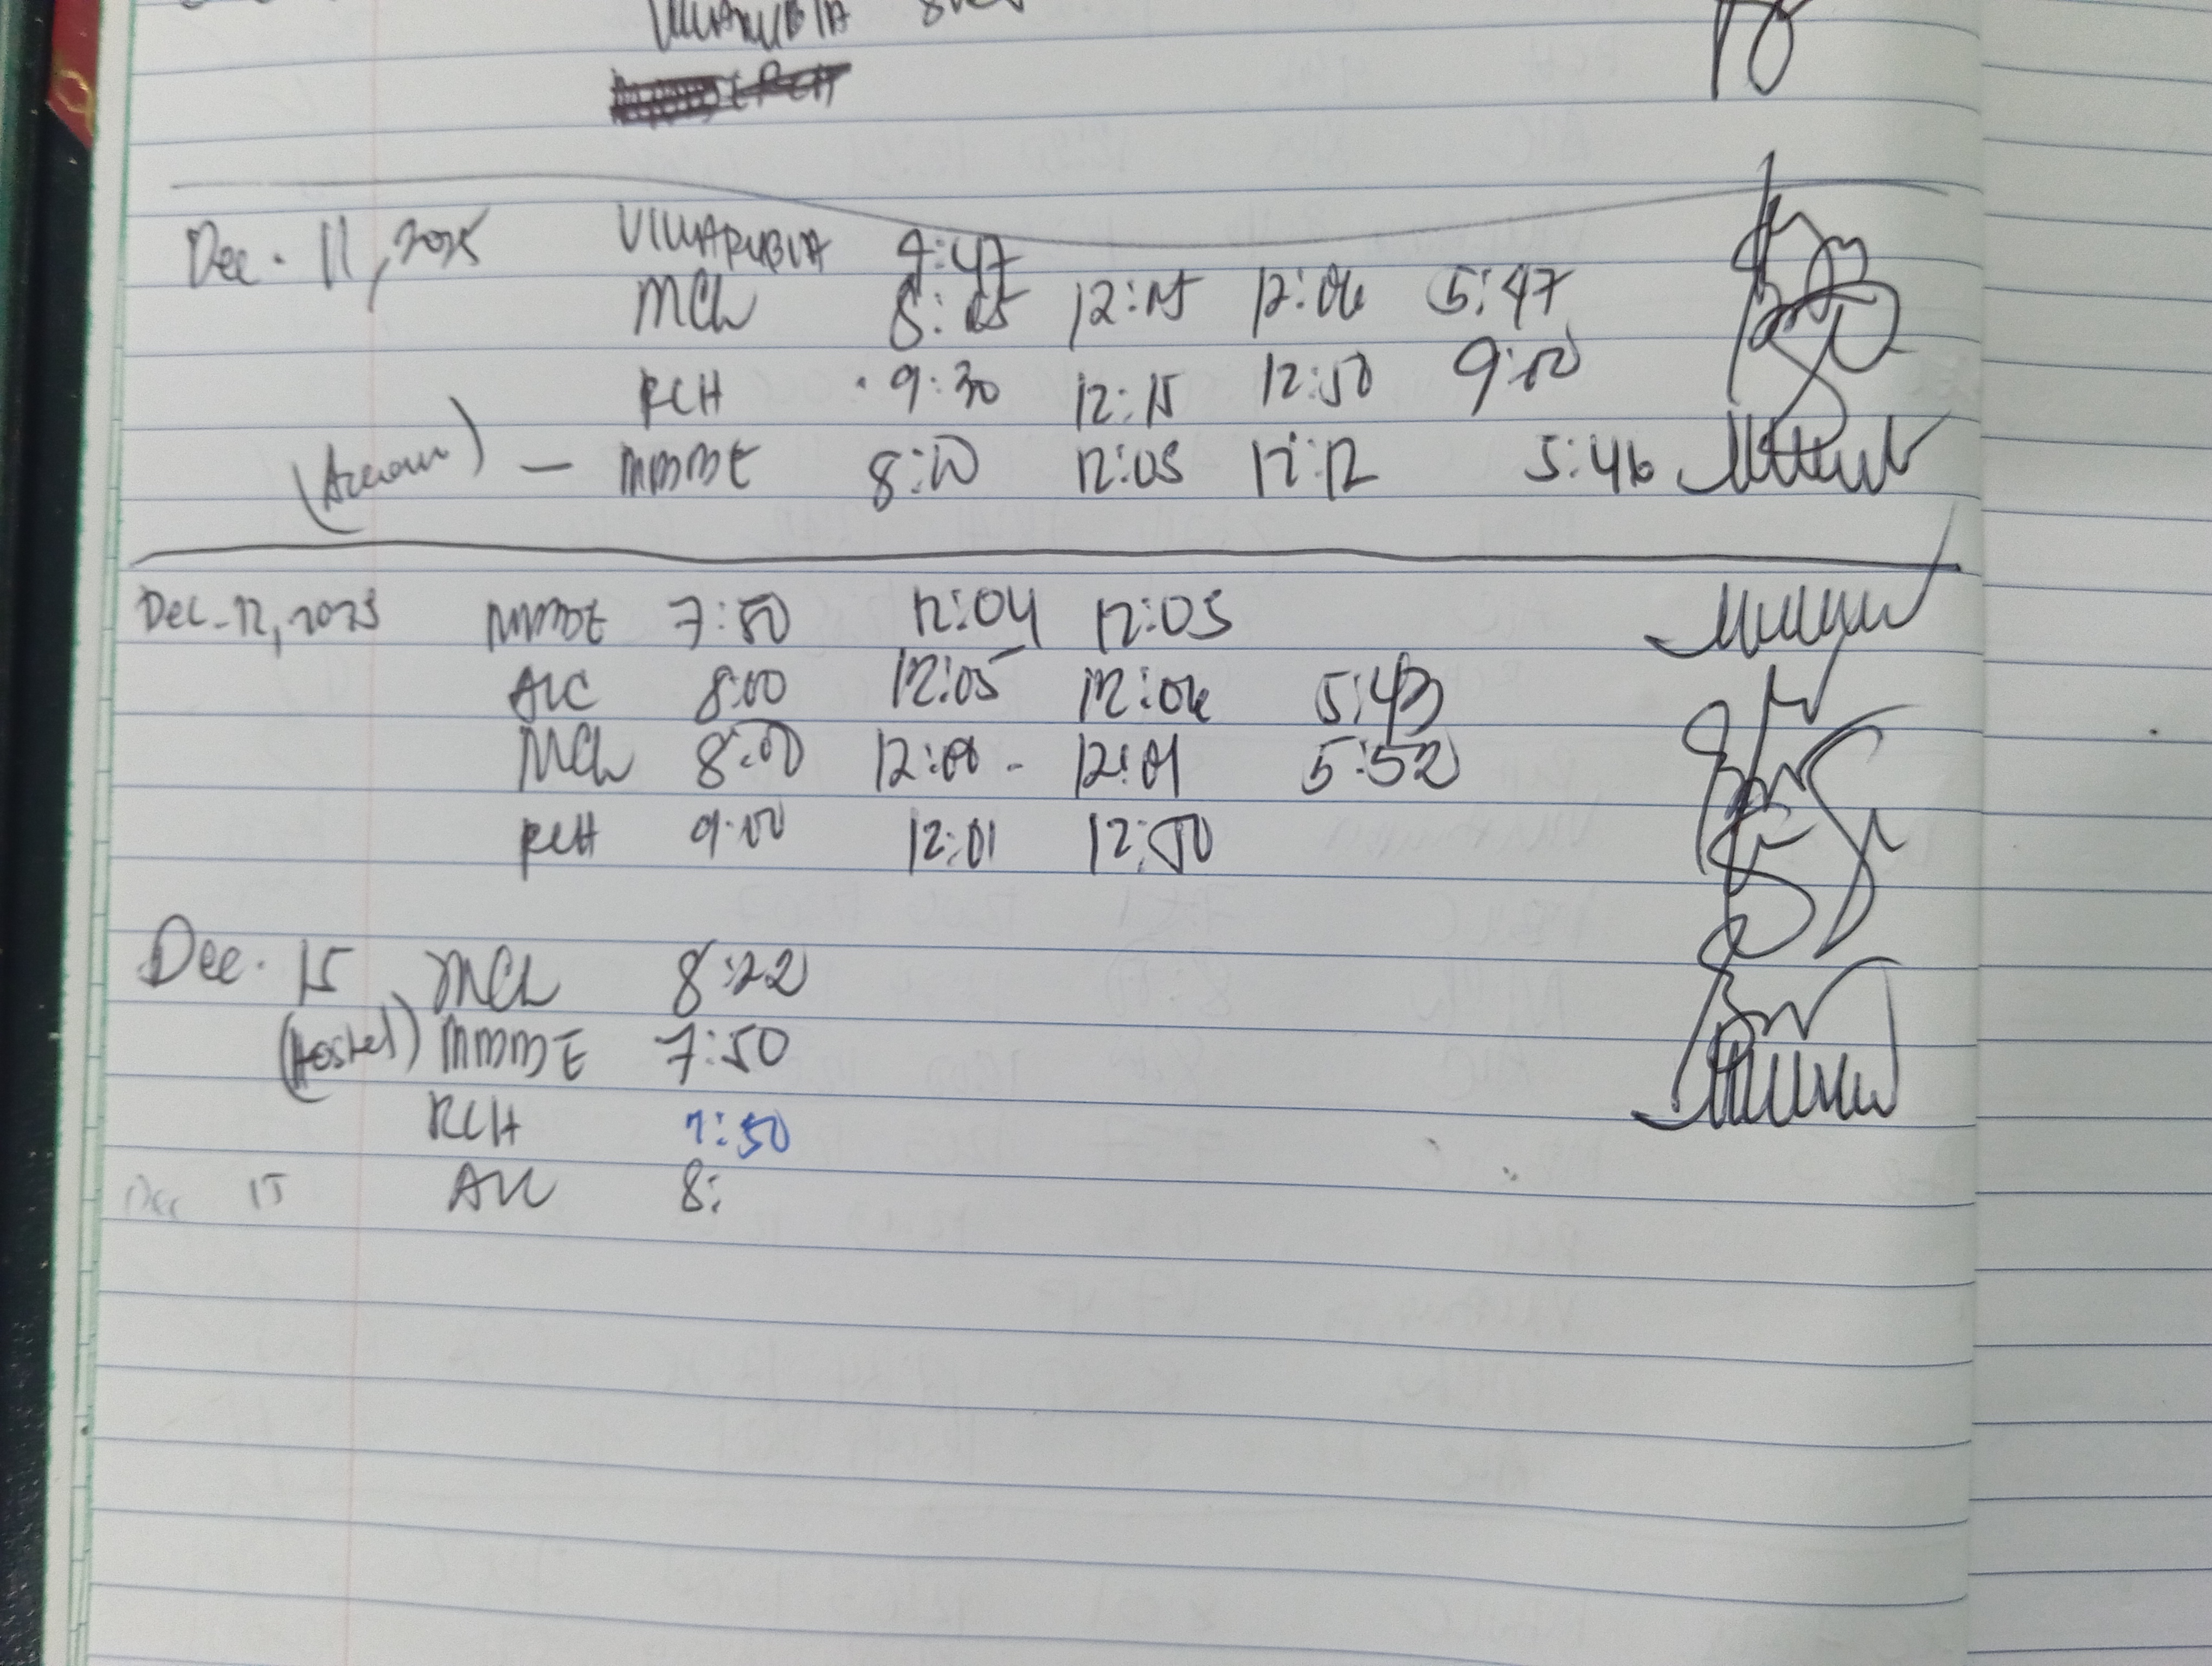 VILLARUBIA
RCH
Dec. 11, 2025 VILLARUBIA 9:47
MCL 8:05 12:05 12:06 5:47
RCH 9:30 12:15 12:50 9:00
— MMDE 8:10 12:05 12:12 5:46
Dec. 12, 2025 MMDE 7:50 12:04 12:05
ALC 8:00 12:05 12:06 5:43
MCL 8:00 12:00 - 12:01 5:52
RCH 9:00 12:01 12:50
Dec. 15 MCL 8:22
(Hostel) MMDE 7:50
RCH 7:50
Dec 15 ALC 8: